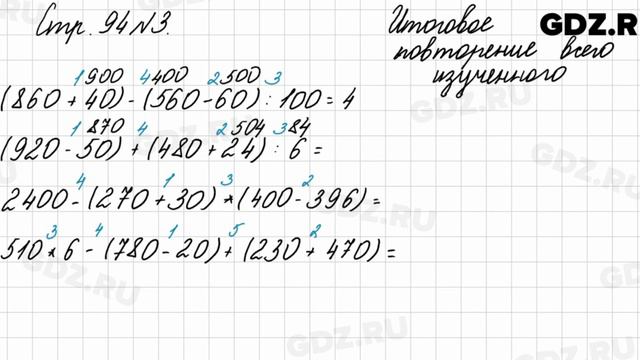 Стр. 94 №3.
Итоговое
повторение всего
изученного
GDZ.R
1 900 4 400 2 500 3
(860 + 40) - (560 - 60) : 100 = 4
1 870 4 2 504 3 84
(920 - 50) + (480 + 24) : 6 =
4 1 3 2
2400 - (270 + 30) * (400 - 396) =
3 4 1 5 2
510 * 6 - (780 - 20) + (230 + 470) =
GDZ.RU
GDZ.RU
GDZ.RU
GDZ.RU